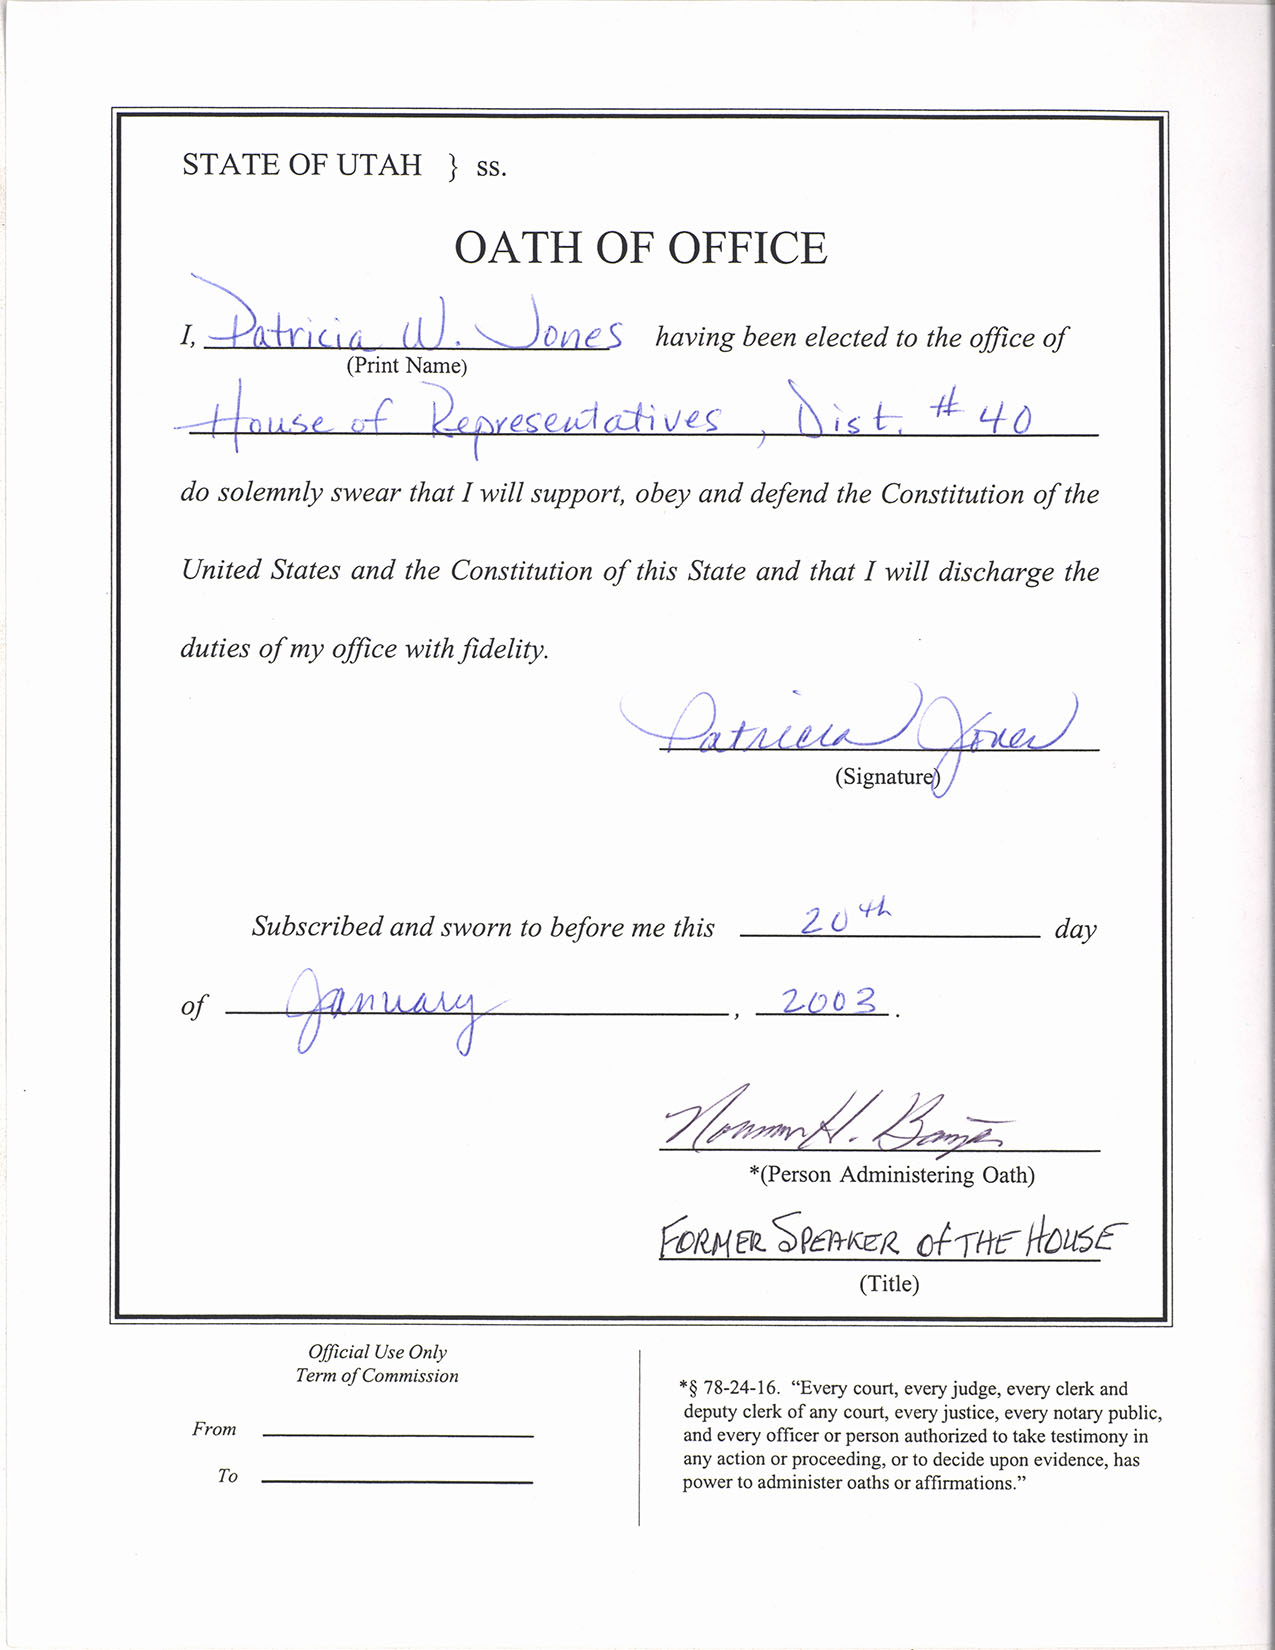 STATE OF UTAH } ss.
OATH OF OFFICE
I, Patricia W. Jones having been elected to the office of
(Print Name)
House of Representatives, Dist. # 40
do solemnly swear that I will support, obey and defend the Constitution of the
United States and the Constitution of this State and that I will discharge the
duties of my office with fidelity.
Patricia Jones
(Signature)
Subscribed and sworn to before me this 20th day
of January, 2003.
Norman H. 
*(Person Administering Oath)
FORMER SPEAKER of THE HOUSE
(Title)
Official Use Only
Term of Commission
From
To
*§ 78-24-16. “Every court, every judge, every clerk and
deputy clerk of any court, every justice, every notary public,
and every officer or person authorized to take testimony in
any action or proceeding, or to decide upon evidence, has
power to administer oaths or affirmations.”